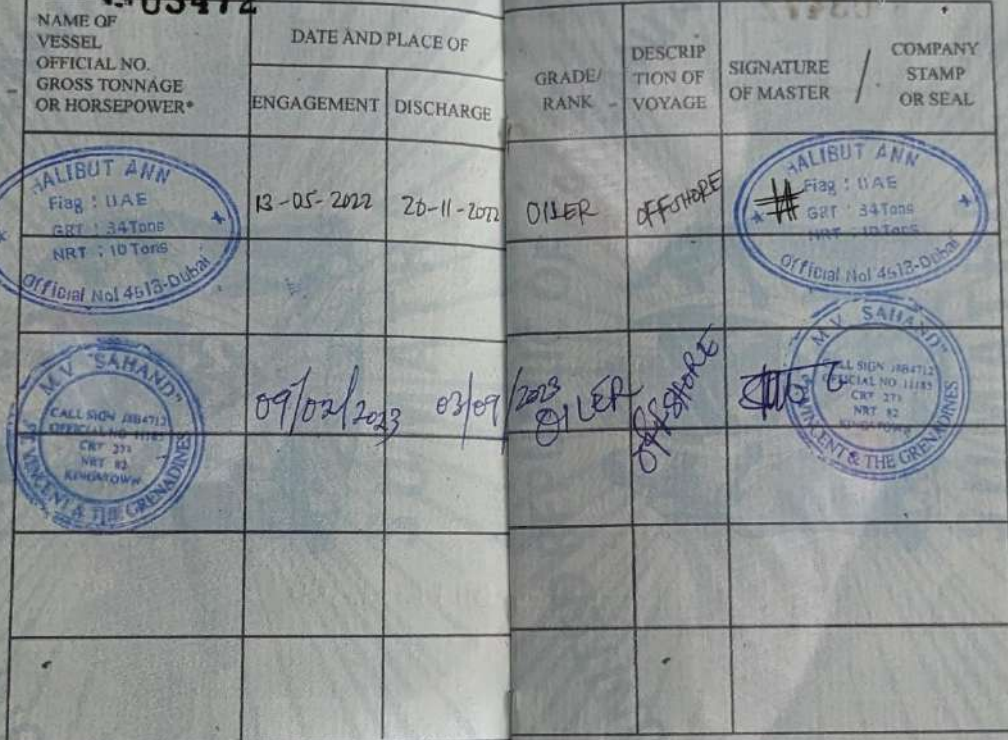 03472
NAME OF
VESSEL
OFFICIAL NO.
GROSS TONNAGE
OR HORSEPOWER*
DATE AND PLACE OF
ENGAGEMENT
DISCHARGE
GRADE/
RANK
DESCRIP
TION OF
VOYAGE
SIGNATURE
OF MASTER
/
COMPANY
STAMP
OR SEAL
HALIBUT ANN
Flag : UAE
GRT : 34 Tons
NRT : 10 Tons
Official No: 4513-Dubai
13-05-2022
20-11-2022
OILER
OFFSHORE
HALIBUT ANN
Flag : UAE
GRT : 34 Tons
NRT : 10 Tons
Official No: 4513-Dubai
M.V "SAHAND"
CALL SIGN J8B4712
OFFICIAL NO 11185
GRT 273
NRT 82
KINGSTOWN
ST VINCENT & THE GRENADINES
09/02/2023
03/09/2023
OILER
OFFSHORE
M.V SAHAND"
CALL SIGN J8B4712
OFFICIAL NO 11185
GRT 273
NRT 82
KINGSTOWN
VINCENT & THE GRENADINES